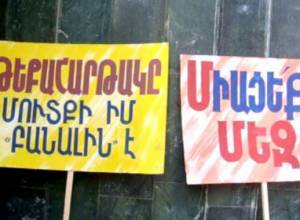 ԹԵՔԱՀԱՐԹԱԿԸ
ՄՈՒՏՔԻ ԻՄ
«ԲԱՆԱԼԻՆ» Է
ՄԻԱՑԵ՛Ք
ՄԵԶ